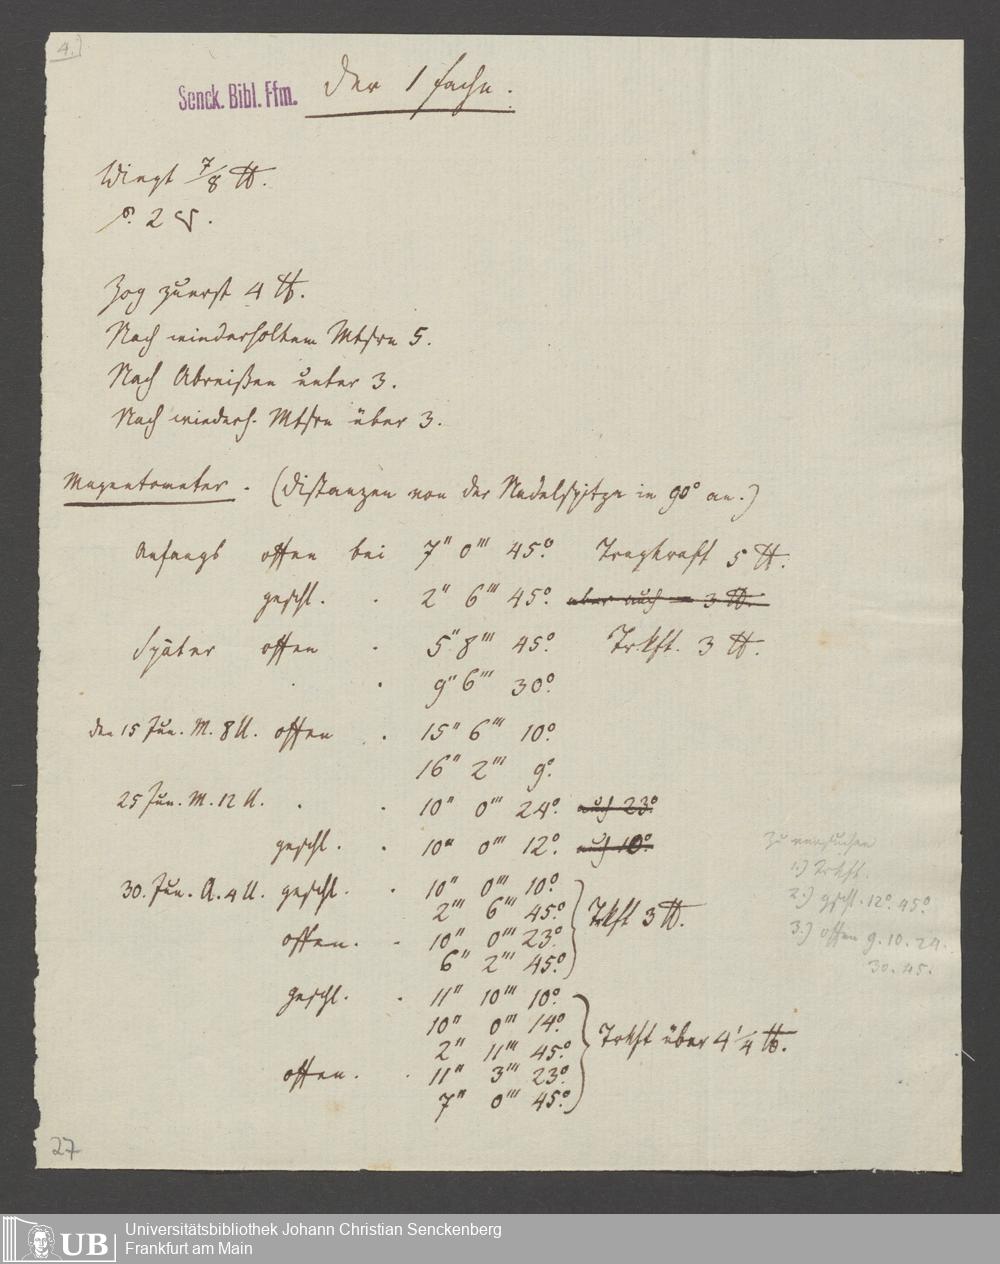 4.)
Senck. Bibl. Ffm.
Der 1 fache.
Wiegt 7/8 ℔.
Zog zuerst 4 ℔.
Nach wiederholtem Mtstrn 5.
Nach Abreißen unter 3.
Nach wiederh. Mtstrn über 3.
Magnetometer. (Distanzen von der Nadelspitze in 90° an.)
Anfangs offen bei 7" 0"' 45°. Tragkraft 5 ℔.
geschl. . 2" 6"' 45°. aber auch — 3 ℔.
Später offen . 5" 8"' 45°. Trkft. 3 ℔.
. . 9" 6"' 30°.
den 15 Jun. M. 8 U. offen . 15" 6"' 10°.
16" 2"' 9°.
25 Jun. M. 12 U. . . 10" 0"' 24°. auch 23°
geschl. . 10" 0"' 12°. auch 10°.
30. Jun. A. 4 U. geschl. . 10" 0"' 10°.
2"' 6"' 45°.
offen. . 10" 0"' 23°. Trkft 3 ℔.
6" 2"' 45°.
geschl. . 11" 10"' 10°.
10" 0"' 14°.
2" 11"' 45°. Trkft über 4 1/4 ℔.
offen. . 11" 3"' 23°.
7" 0"' 45°.
Zu versuchen
1.) Trkft.
2.) geschl. 12°. 45°.
3.) offen 9. 10. 24.
30. 45.
27
UB
Universitätsbibliothek Johann Christian Senckenberg
Frankfurt am Main